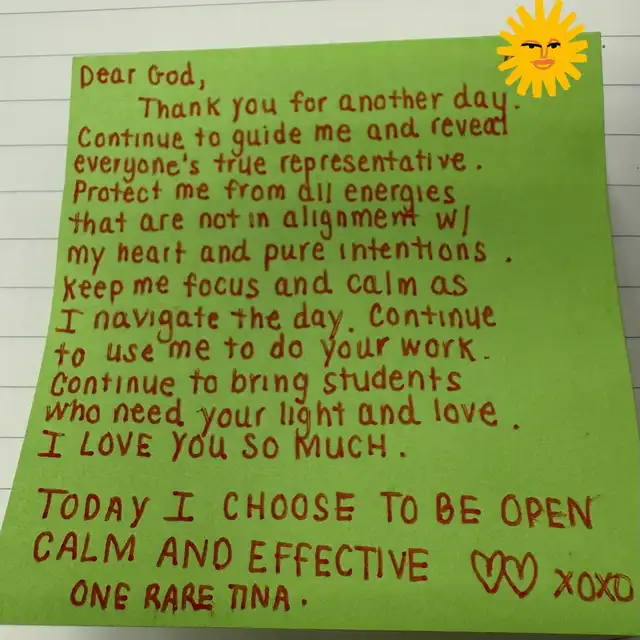 Dear God,
Thank you for another day.
Continue to guide me and reveal
everyone's true representative.
Protect me from all energies
that are not in alignment w/
my heart and pure intentions.
keep me focus and calm as
I navigate the day. Continue
to use me to do your work.
Continue to bring students
who need your light and love.
I LOVE YOU SO MUCH.
TODAY I CHOOSE TO BE OPEN
CALM AND EFFECTIVE XOXO
ONE RARE TINA.